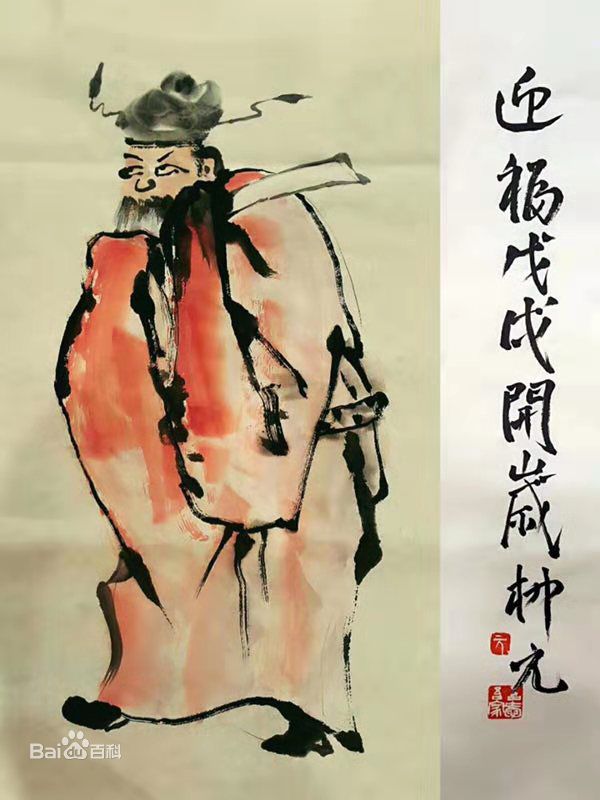 迎福戊戌開歲柳元
元
Bai du 百科